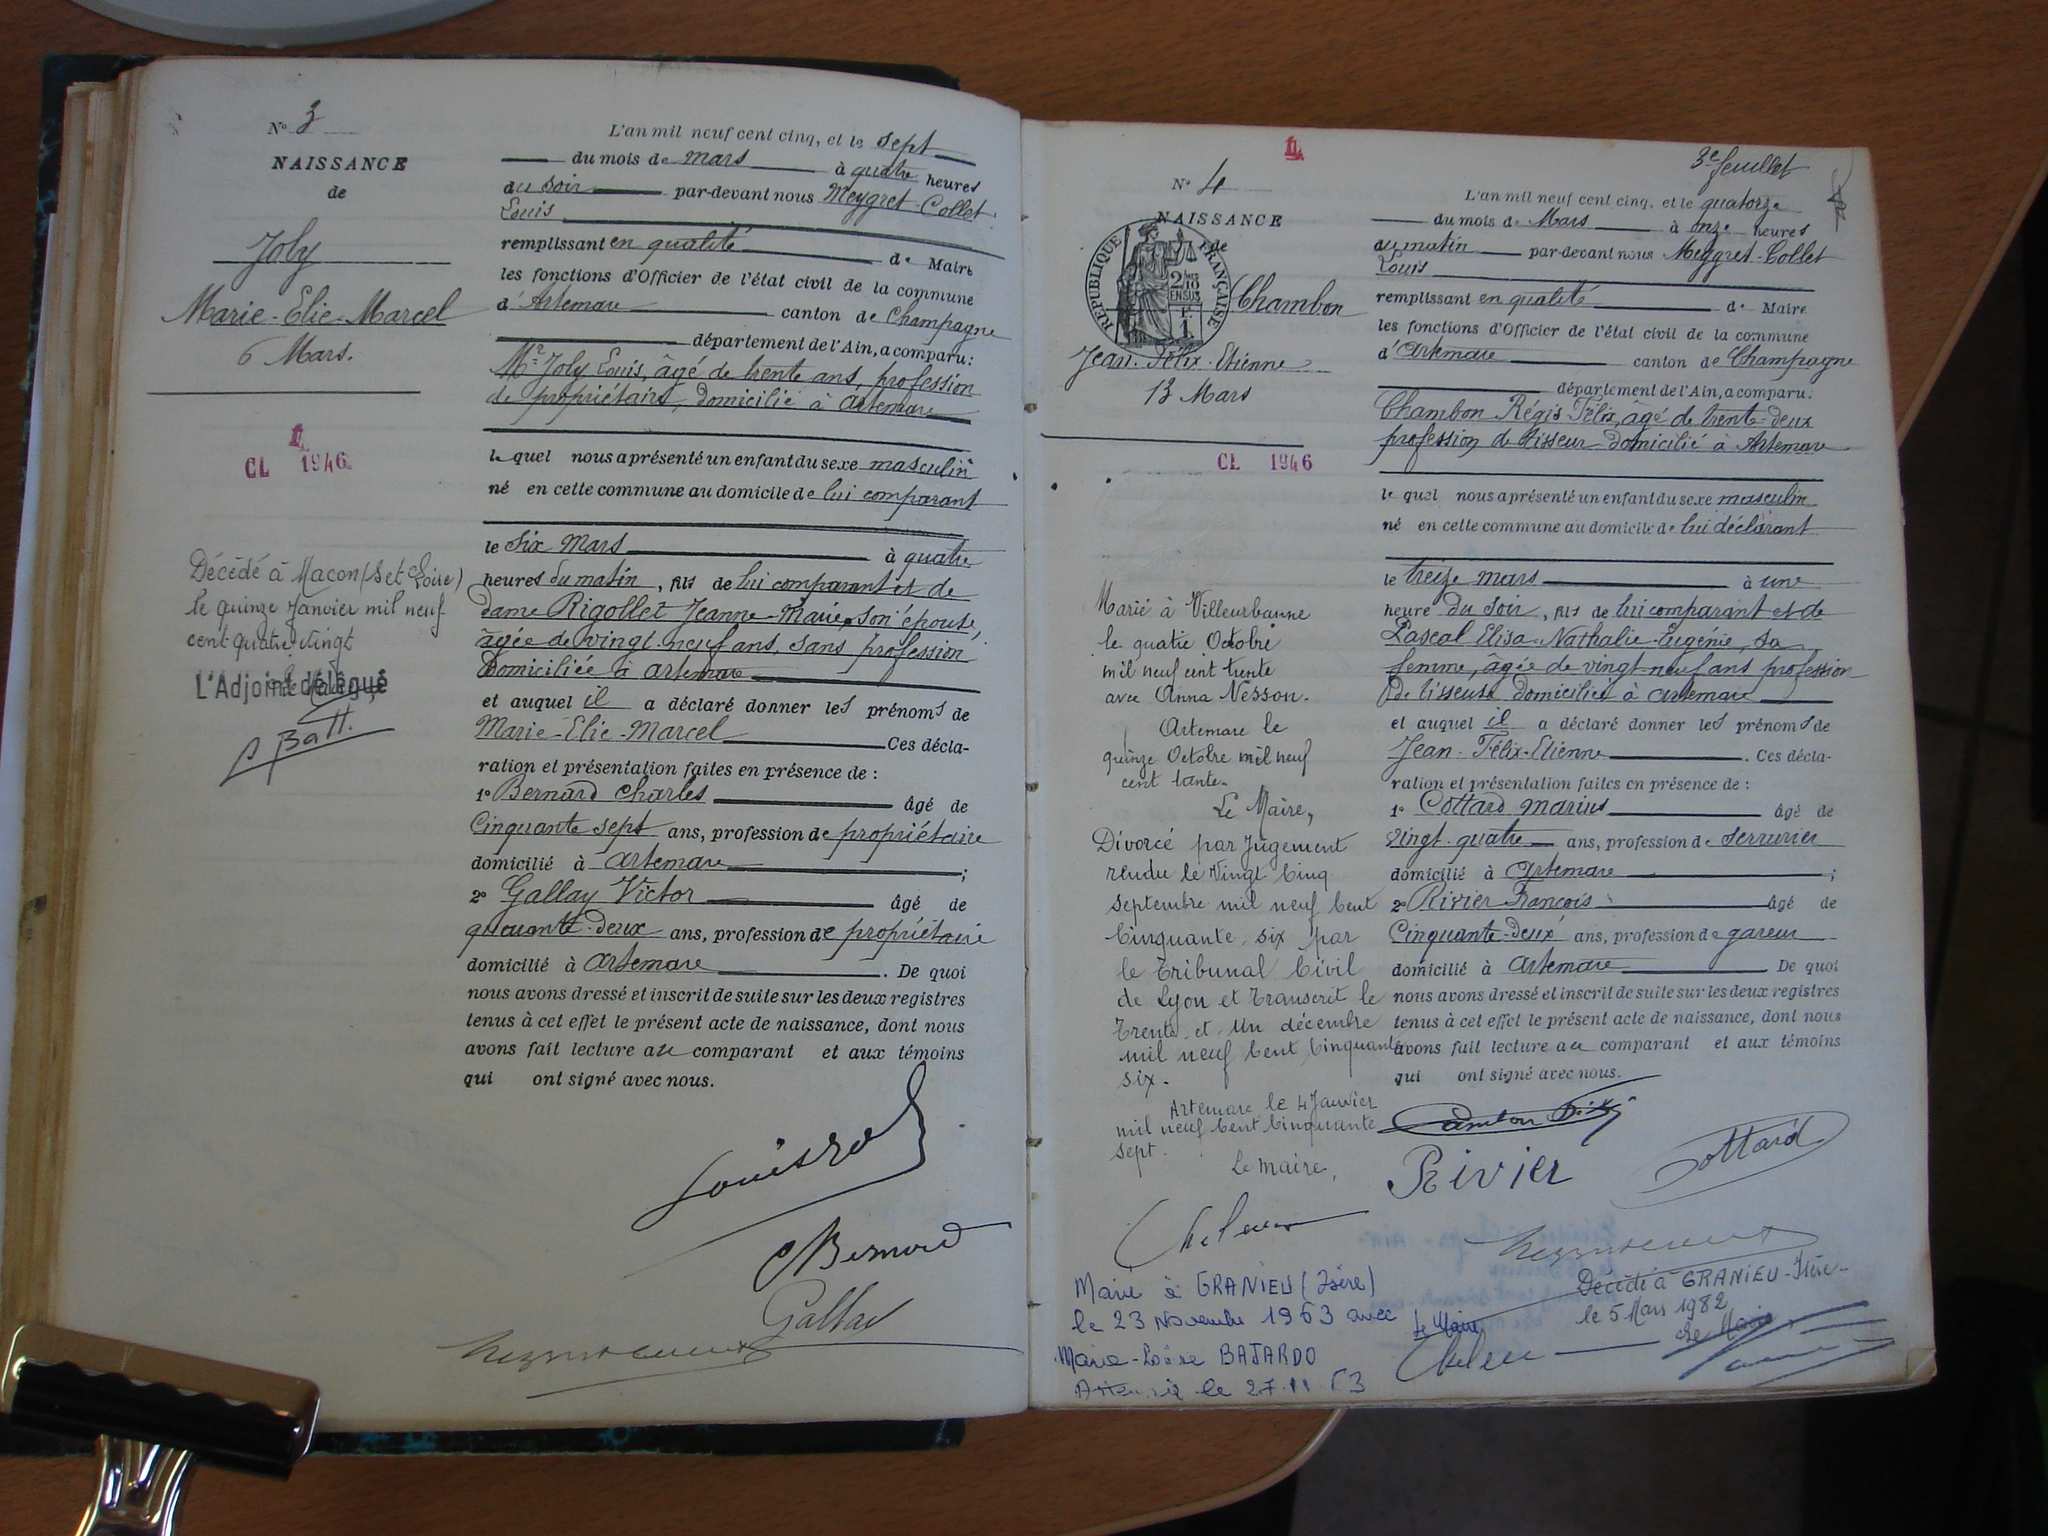 N° 3
NAISSANCE
de
Joly
Marie-Elie-Marcel
6 Mars.
CL 1946
Décédé à Macon (S et Loire)
le quinze Janvier mil neuf
cent quatre vingt
L'Adjoint délégué
L'an mil neuf cent cinq, et le sept
du mois de mars à quatre heures
du soir par-devant nous Meygret-Collet
Louis
remplissant en qualité de Maire
les fonctions d'Officier de l'état civil de la commune
d'Artemare canton de Champagne
département de l'Ain, a comparu:
Mr Joly Louis, âgé de trente ans, profession
de propriétaire, domicilié à Artemare
lequel nous a présenté un enfant du sexe masculin
né en cette commune au domicile de lui comparant
le six mars à quatre
heures du matin, fils de lui comparant et de
dame Rigollet Jeanne-Marie, son épouse,
âgée de vingt-neuf ans, sans profession
domiciliée à Artemare
et auquel il a déclaré donner les prénoms de
Marie-Elie-Marcel Ces décla-
ration et présentation faites en présence de :
1° Bernard Charles âgé de
Cinquante sept ans, profession de propriétaire
domicilié à Artemare ;
2° Gallay Victor âgé de
quarante-deux ans, profession de propriétaire
domicilié à Artemare . De quoi
nous avons dressé et inscrit de suite sur les deux registres
tenus à cet effet le présent acte de naissance, dont nous
avons fait lecture au comparant et aux témoins
qui ont signé avec nous.
CBernard
Gallay
3e feuillet
N° 4
NAISSANCE
de
RÉPUBLIQUE FRANÇAISE
Chambon
Jean-Félix-Etienne
13 Mars
CL 1946
Marié à Villeurbanne
le quatre Octobre
mil neuf cent trente
avec Anna Nesson.
Artemare le
quinze Octobre mil neuf
cent trente.
Le Maire,
Divorcé par Jugement
rendu le Vingt Cinq
septembre mil neuf Cent
Cinquante six par
le Tribunal Civil
de Lyon et Transcrit le
Trente et Un décembre
mil neuf Cent Cinquante
six.
Artemare le 4 Janvier
mil neuf Cent Cinquante
sept.
Le maire,
Marié à GRANIEU (Isère)
le 23 Novembre 1963 avec
Marie-Loïse BAJARDO
Artemare le 27.11.63
Le Maire
L'an mil neuf cent cinq, et le quatorze
du mois de Mars à onze heures
du matin par-devant nous Meygret-Collet
Louis
remplissant en qualité de Maire
les fonctions d'Officier de l'état civil de la commune
d'Artemare canton de Champagne
département de l'Ain, a comparu:
Chambon Régis Félix, âgé de trente-deux
profession de tisseur domicilié à Artemare
lequel nous a présenté un enfant du sexe masculin
né en cette commune au domicile de lui déclarant
le treize mars à une
heure du soir, fils de lui comparant et de
Pascal Elisa Nathalie Eugénie, sa
femme, âgée de vingt-neuf ans profession
de tisseuse domiciliée à Artemare
et auquel il a déclaré donner les prénoms de
Jean-Félix-Etienne . Ces décla-
ration et présentation faites en présence de :
1° Cottard Marius âgé de
vingt-quatre ans, profession de serrurier
domicilié à Artemare ;
2° Rivier François âgé de
Cinquante-deux ans, profession de gareur
domicilié à Artemare De quoi
nous avons dressé et inscrit de suite sur les deux registres
tenus à cet effet le présent acte de naissance, dont nous
avons fait lecture au comparant et aux témoins
qui ont signé avec nous.
Rivier
Cottard
Décédé à GRANIEU-Isère-
le 5 Mars 1982
Le Maire